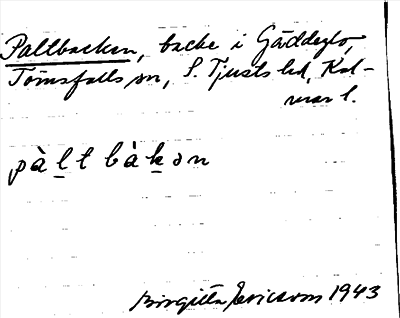 Paltbacken, backe i Gäddeglo,
Törnsfalls sn, S. Tjusts hd, Kal-
mar l.
pàlt bàkən
Birgitta Ericsson 1943